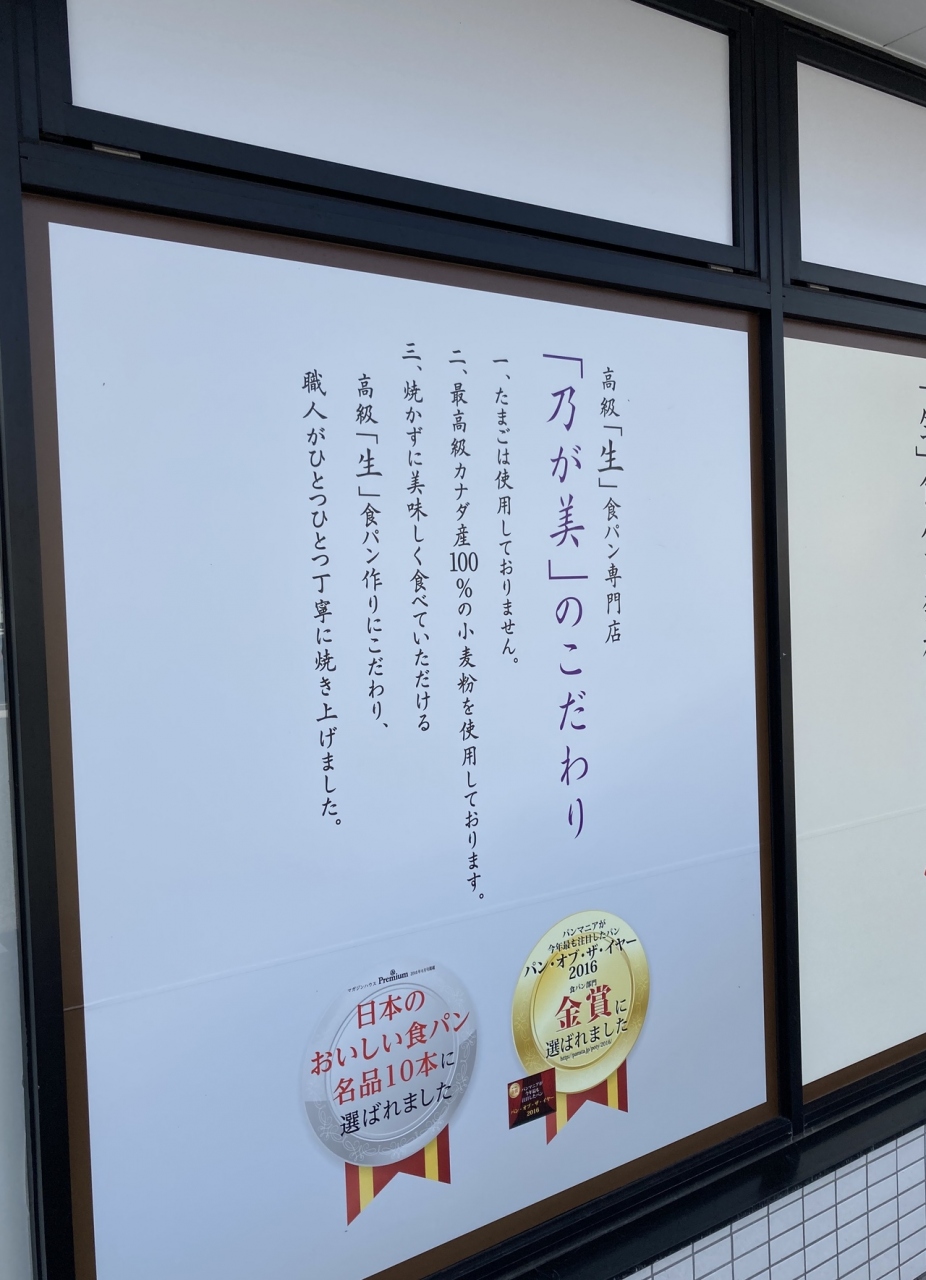 高級「生」食パン専門店
「乃が美」のこだわり
一、たまごは使用しておりません。
二、最高級カナダ産100%の小麦粉を使用しております。
三、焼かずに美味しく食べていただける
高級「生」食パン作りにこだわり、
職人がひとつひとつ丁寧に焼き上げました。
パンマニアが
今年最も注目したパン
パン・オブ・ザ・イヤー
2016
食パン部門
金賞に
選ばれました
パンマニアが
今年最も
注目したパン
パン・オブ・ザ・イヤー
2016
マガジンハウス Premium
日本の
おいしい食パン
名品10本に
選ばれました